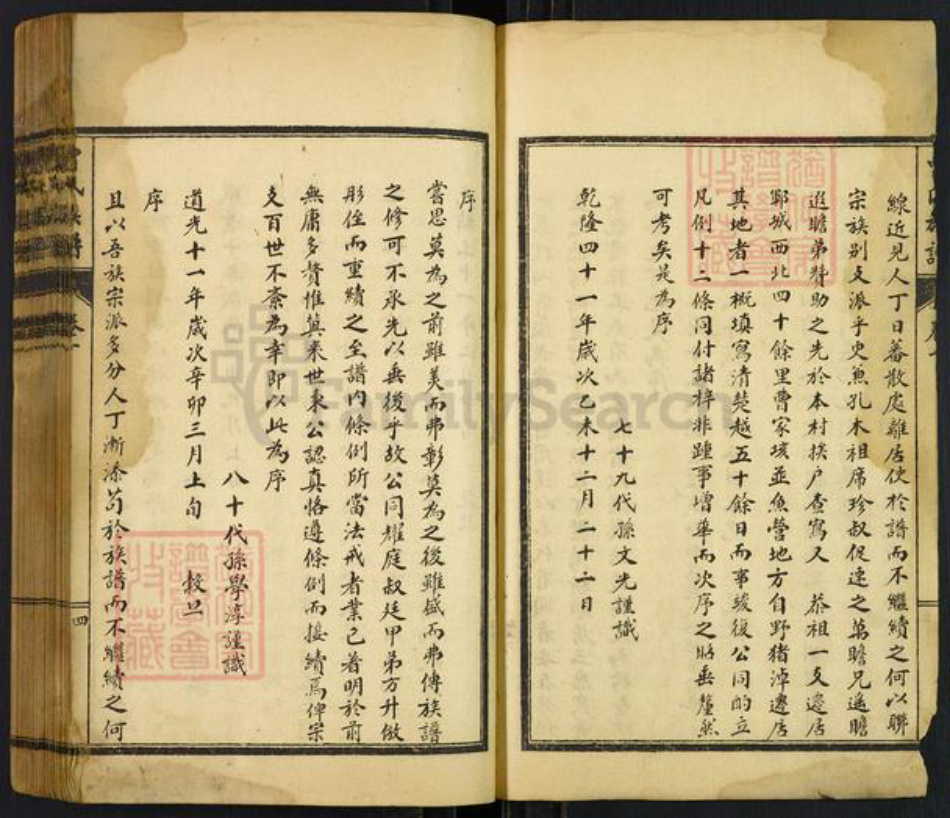 線近見人丁日蕃散處離居使於譜而不繼續之何以聯
宗族别支派乎史魚孔木祖席珍叔促速之萬瞻兄遙瞻
遐瞻弟贊助之先於本村挨户查寫又 恭祖一支遷居
鄆城西北四十餘里曹家垓並魚營地方自野猪淖遷居
其地者一概填寫清楚越五十餘日而事竣復公同酌立
凡例十二條同付諸梓非踵事增華而次序之昭垂釐然
可考矣是為序
七十九代孫文光謹識
乾隆四十一年歲次乙未十二月二十二日
序
嘗思莫為之前雖美而弗彰莫為之後雖盛而弗傳族譜
之修可不承先以垂後乎故公同耀庭叔廷甲弟方升倣
彤侄而重續之至譜内條例所當法戒者業已著明於前
無庸多贅惟冀来世秉公認真恪遵條例而接續焉俾宗
支百世不紊為幸即以此為序
八十代孫學淳謹識
道光十一年歲次辛卯三月上旬 穀旦
序
且以吾族宗派多分人丁漸添苟於族譜而不繼續之何
四
FamilySearch